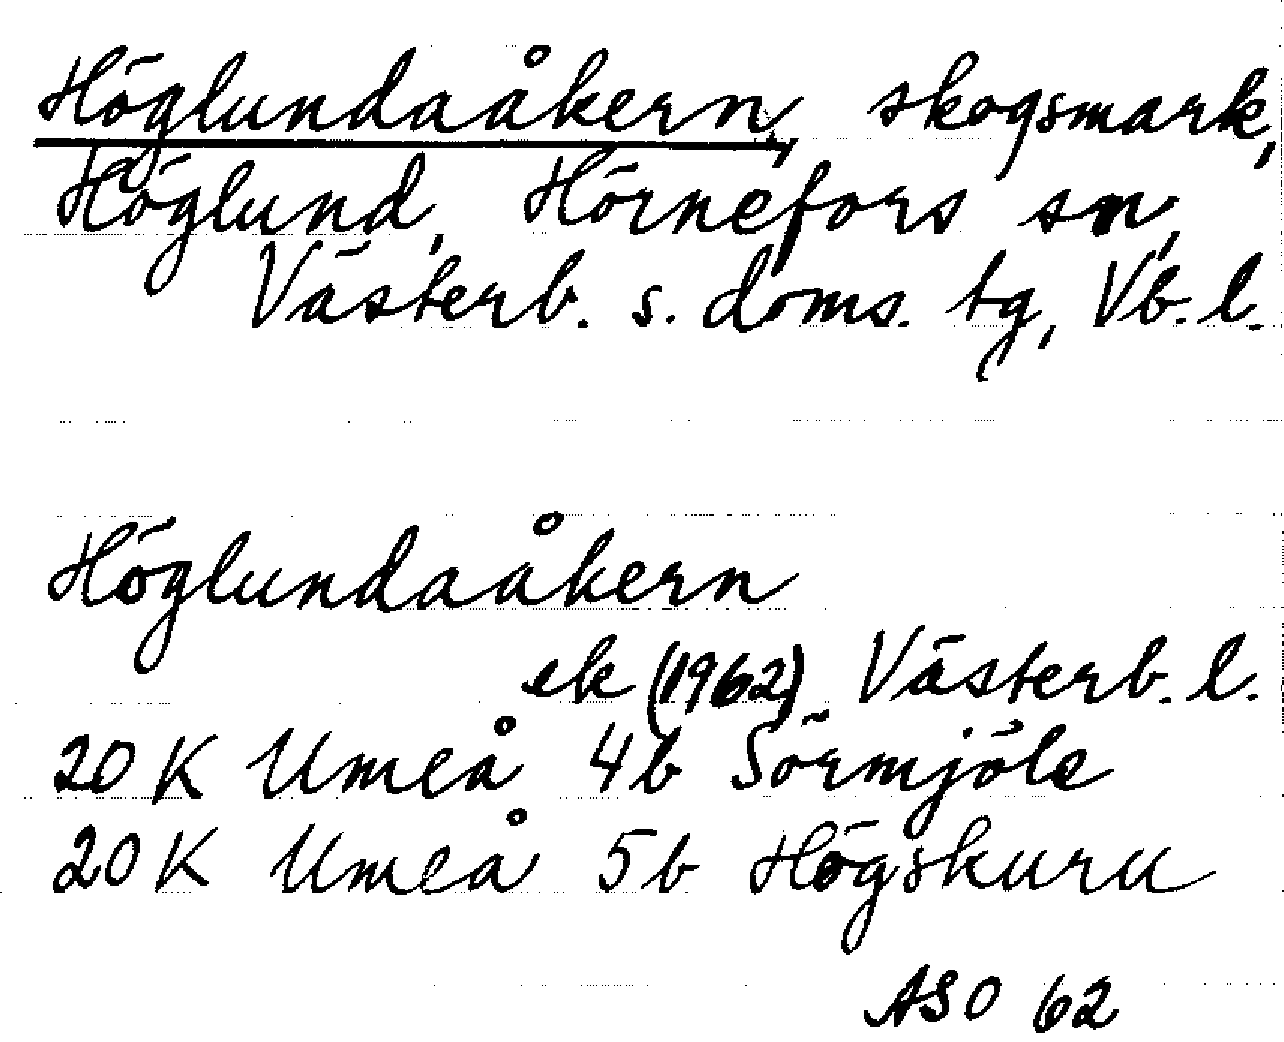 Höglundaåkern, skogsmark,
Höglund, Hörnefors sn,
Västerb. s. doms. tg, Vb. l.
Höglundaåkern
ek (1962) Västerb. l.
20 K Umeå 4b Sörmjöle
20 K Umeå 5b Högskuru
ASO 62